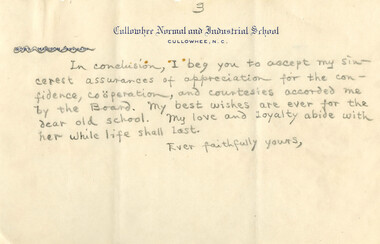 3
Cullowhee Normal and Industrial School
CULLOWHEE, N.C.
In conclusion, I beg you to accept my sin-
cerest assurances of appreciation for the con-
fidence, coöperation, and courtesies accorded me
by the Board. My best wishes are ever for the
dear old school. My love and loyalty abide with
her while life shall last.
Ever faithfully yours,